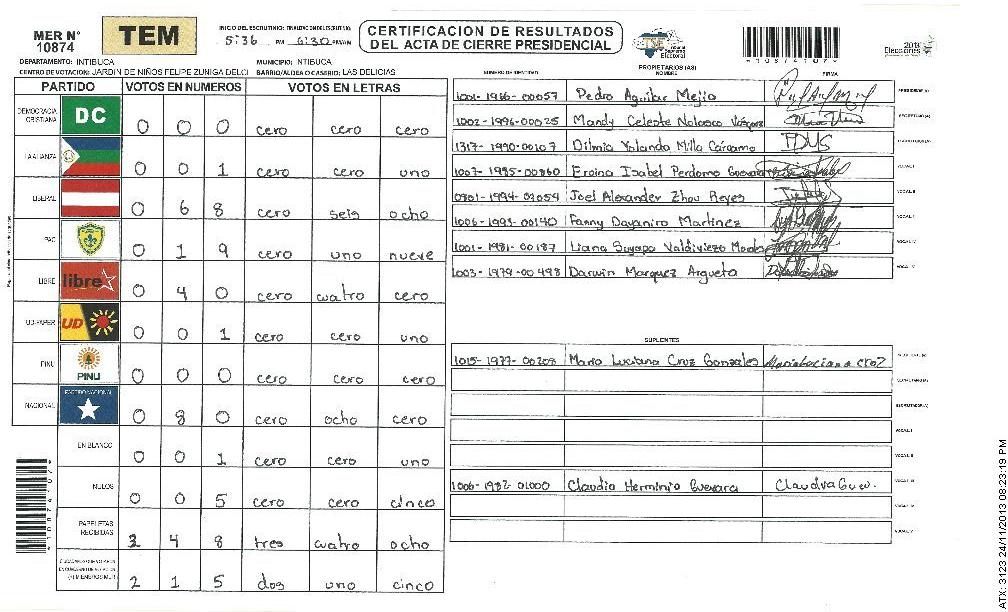 MER N° 10874
TEM
INICIO DEL ESCRUTINIO: 5:36 PM
6:30 PM/AM
CERTIFICACION DE RESULTADOS
DEL ACTA DE CIERRE PRESIDENCIAL
TSE Tribunal Supremo Electoral
2013 Elecciones
DEPARTAMENTO: INTIBUCA
MUNICIPIO: NTIBUCA
CENTRO DE VOTACION: JARDIN DE NIÑOS FELIPE ZUNIGA DELCI
BARRIO/ALDEA O CASERIO: LAS DELICIAS
PARTIDO VOTOS EN NUMEROS VOTOS EN LETRAS
DEMOCRACIA CRISTIANA DC 0 0 0 cero cero cero
LA ALIANZA 0 0 1 cero cero uno
LIBERAL 0 6 8 cero seis ocho
PAC 0 1 9 cero uno nueve
LIBRE libre 0 4 0 cero cuatro cero
UD-FAPER UD 0 0 1 cero cero uno
PINU PINU 0 0 0 cero cero cero
NACIONAL PARTIDO NACIONAL 0 8 0 cero ocho cero
EN BLANCO 0 0 1 cero cero uno
NULOS 0 0 5 cero cero cinco
PAPELETAS RECIBIDAS 3 4 8 tres cuatro ocho
2 1 5 dos uno cinco
NUMERO DE IDENTIDAD
PROPIETARIOS (AS)
NOMBRE
FIRMA
1001-1966-00057 Pedro Aguilar Mejia
1002-1996-00025 Mandy Celeste Nolasco Vasquez
1317-1990-00107 Dilmia Yolando Milla Cárcamo
1007-1985-00860 Eroina Isabel Perdomo Guevara
0801-1994-02054 Joel Alexander Zhou Reyes
1006-1993-00140 Fanny Dayanira Martinez
1001-1981-00187 Liana Suyapa Valdiviezo
1003-1979-00498 Darwin Marquez Argueta
SUPLENTES
1015-1977-00208 Maria Luciana Cruz Gonzales
1006-1982-01000 Claudia Herminia Guevara
ATX: 3123 24/11/2013 08:23:19 PM